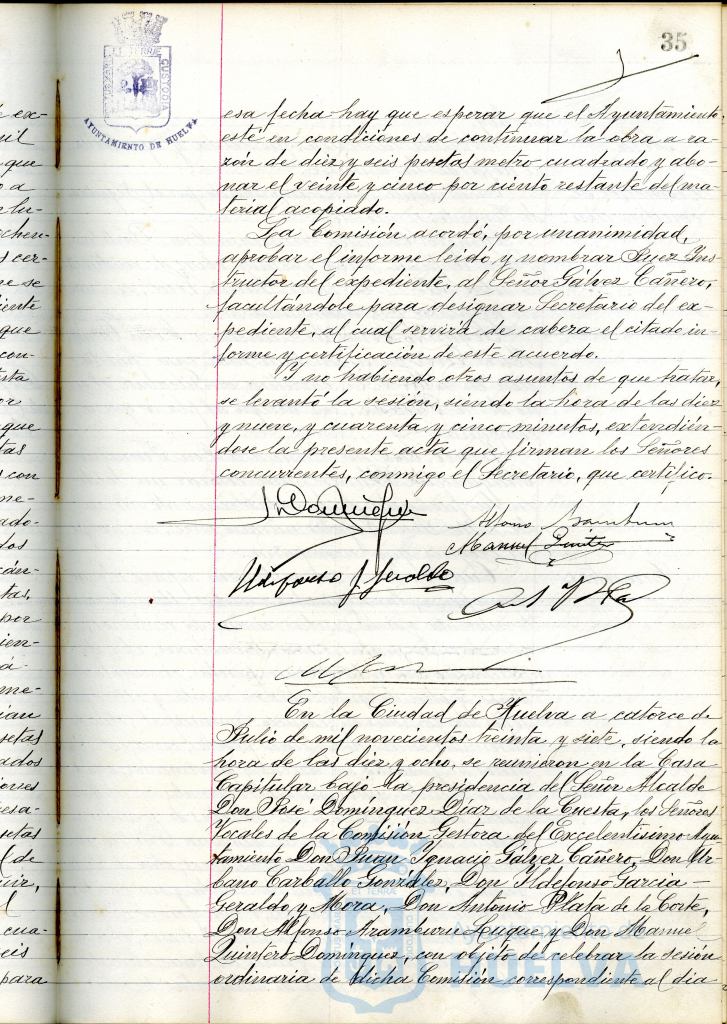 35
AYUNTAMIENTO DE HUELVA
esa fecha hay que esperar que el Ayuntamiento
esté en condiciones de continuar la obra a ra-
zón de diez y seis pesetas metro cuadrado y abo-
nar el veinte y cinco por ciento restante del ma-
terial acopiado.
La Comisión acordó, por unanimidad,
aprobar el informe leido y nombrar Juez Ins-
tructor del expediente, al Señor Gálvez Cañero,
facultándole para designar Secretario del ex-
pediente, al cual servirá de cabera el citado in-
forme y certificación de este acuerdo.
Y no habiendo otros asuntos de que tratar,
se levantó la sesión, siendo la hora de las diez
y nueve, y cuarenta y cinco minutos, extendién-
dose la presente acta que firman los Señores
concurrentes, conmigo el Secretario, que certifico.
Manuel Quintero
En la Ciudad de Huelva a catorce de
Julio de mil novecientos treinta y siete, siendo la
hora de las diez y ocho, se reunieron en la Casa
Capitular bajo la presidencia del Señor Alcalde
Don José Domínguez Díaz de la Cuesta, los Señores
Vocales de la Comisión Gestora del Excelentísimo Ayun-
tamiento Don Juan Ignacio Gálvez Cañero, Don Ur-
bano Carballo González, Don Ildefonso García-
Geraldo y Mora, Don Antonio Plata de la Corte,
Don Alfonso Aramburu Luque y Don Manuel
Quintero Domínguez, con objeto de celebrar la sesión
ordinaria de dicha Comisión correspondiente al dia
HUELVA